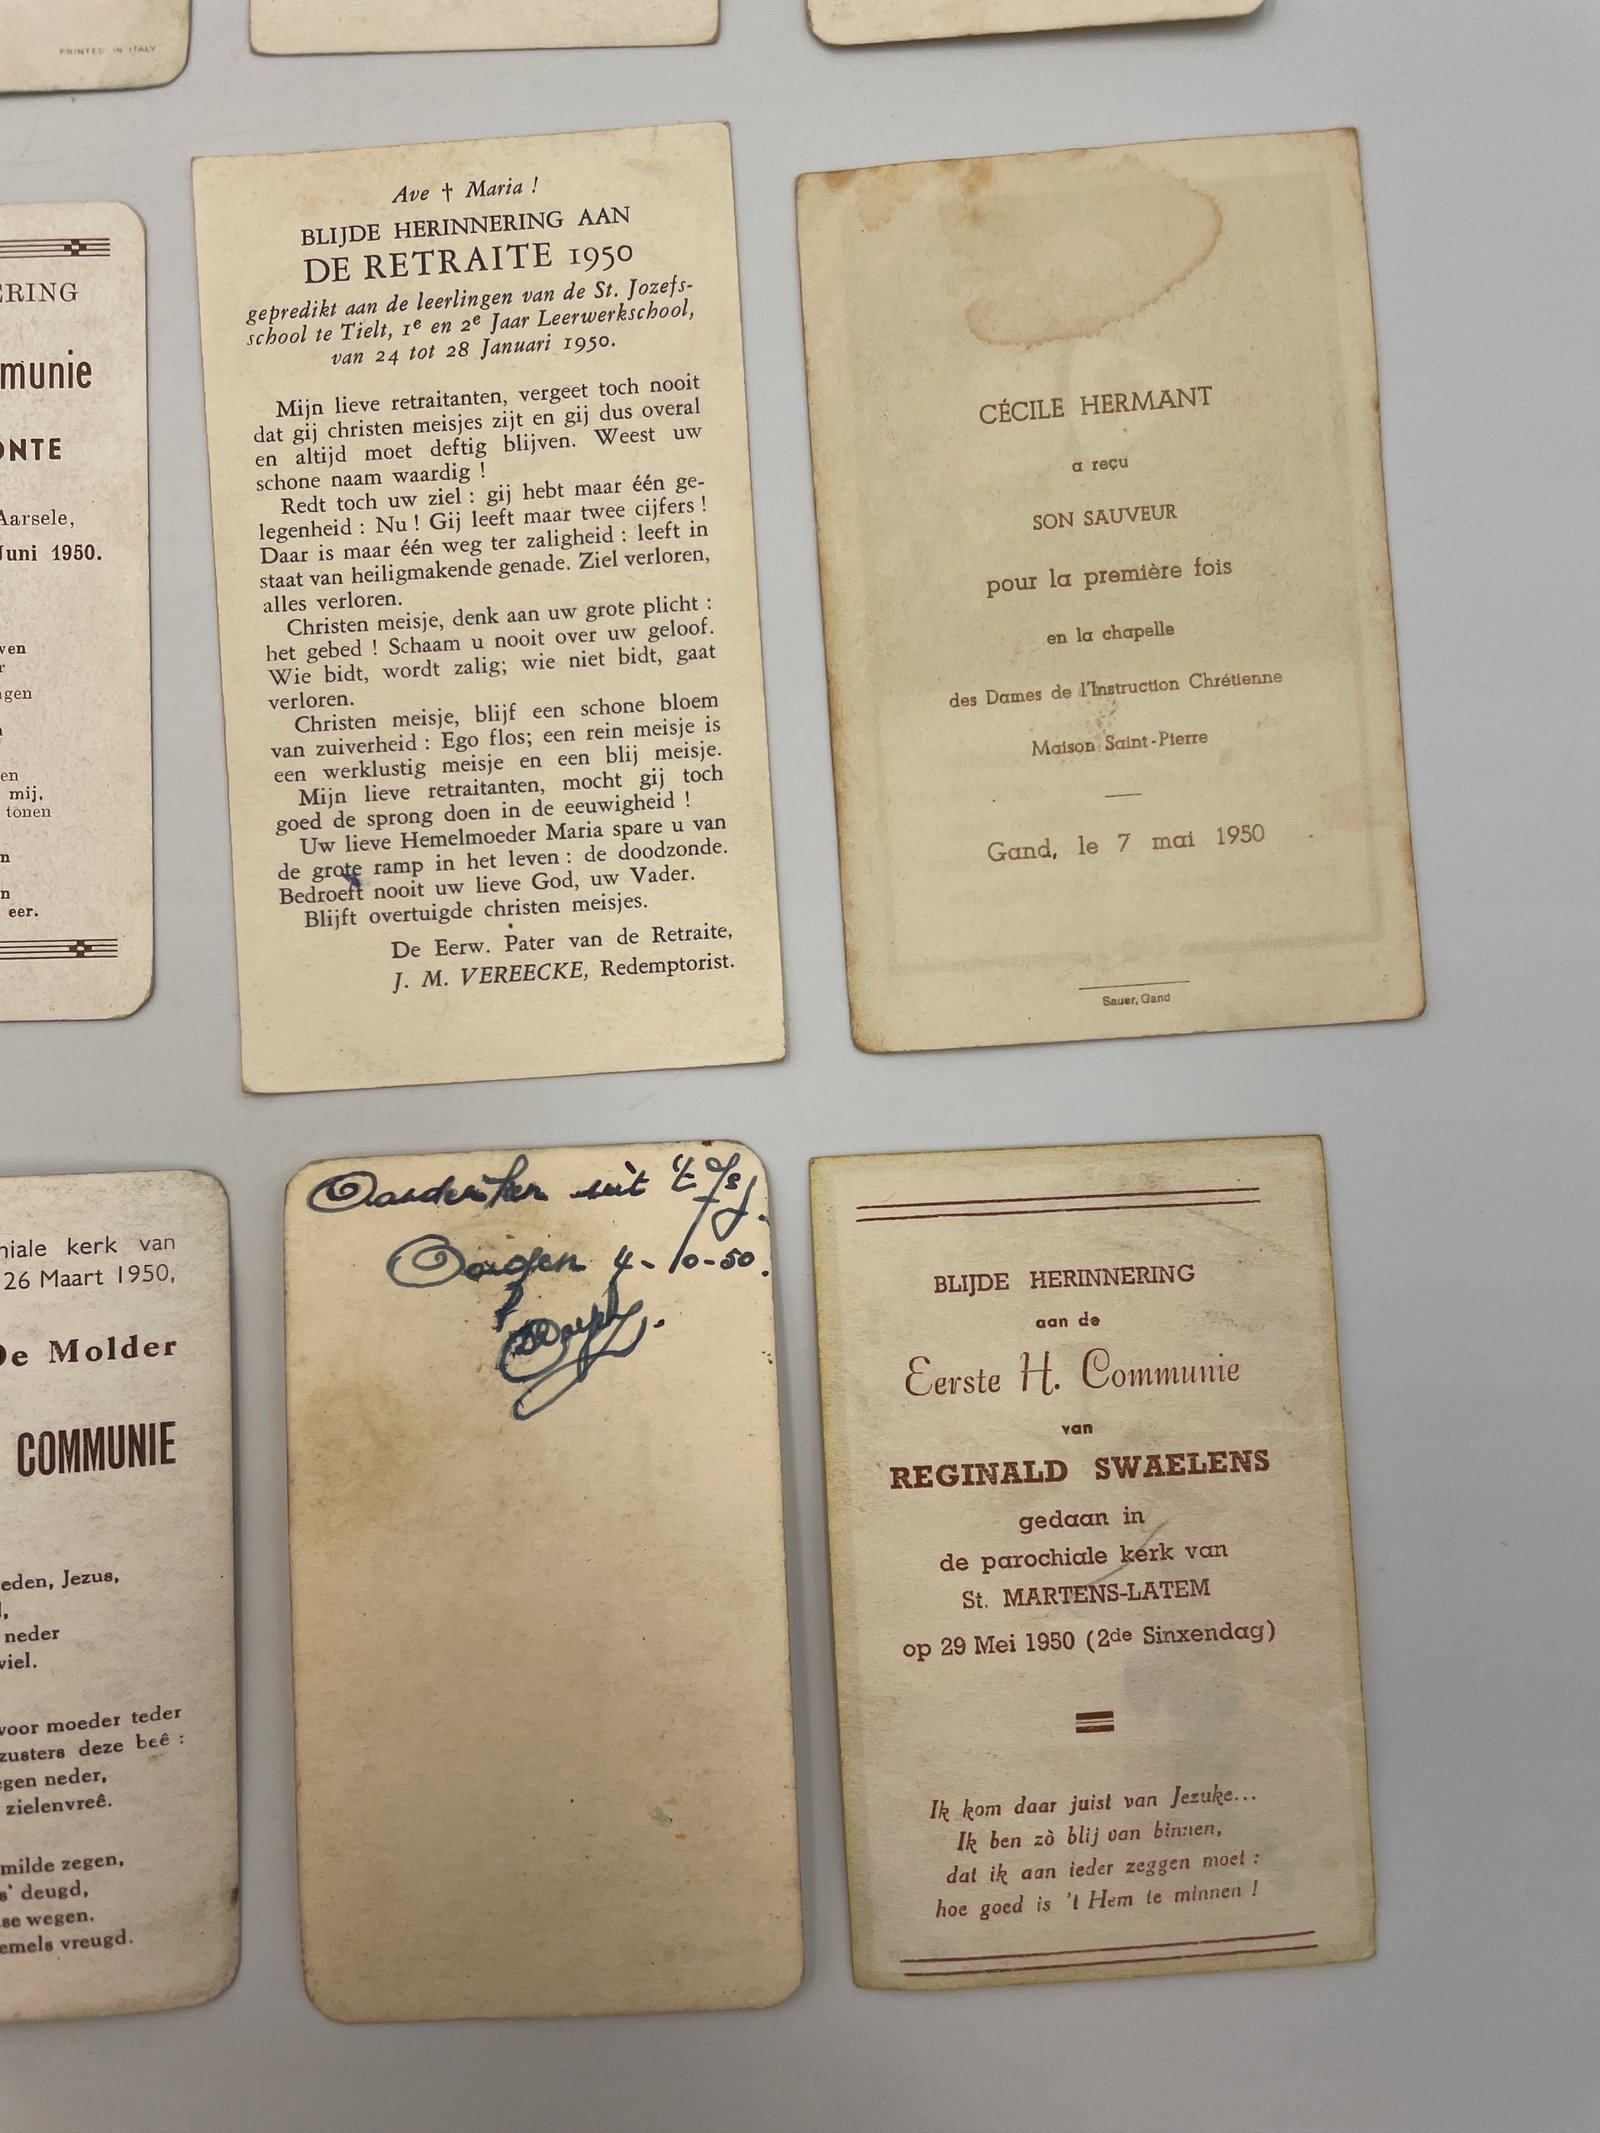 PRINTED IN ITALY
ERING
munie
ONTE
Aarsele,
Juni 1950.
ven
r
gen
en
mij,
tonen
n
n
eer.
Ave † Maria !
BLIJDE HERINNERING AAN
DE RETRAITE 1950
gepredikt aan de leerlingen van de St. Jozefs-
school te Tielt, 1e en 2e Jaar Leerwerkschool,
van 24 tot 28 Januari 1950.
Mijn lieve retraitanten, vergeet toch nooit
dat gij christen meisjes zijt en gij dus overal
en altijd moet deftig blijven. Weest uw
schone naam waardig !
Redt toch uw ziel : gij hebt maar één ge-
legenheid : Nu ! Gij leeft maar twee cijfers !
Daar is maar één weg ter zaligheid : leeft in
staat van heiligmakende genade. Ziel verloren,
alles verloren.
Christen meisje, denk aan uw grote plicht :
het gebed ! Schaam u nooit over uw geloof.
Wie bidt, wordt zalig; wie niet bidt, gaat
verloren.
Christen meisje, blijf een schone bloem
van zuiverheid : Ego flos; een rein meisje is
een werklustig meisje en een blij meisje.
Mijn lieve retraitanten, mocht gij toch
goed de sprong doen in de eeuwigheid !
Uw lieve Hemelmoeder Maria spare u van
de grote ramp in het leven : de doodzonde.
Bedroeft nooit uw lieve God, uw Vader.
Blijft overtuigde christen meisjes.
De Eerw. Pater van de Retraite,
J. M. VEREECKE, Redemptorist.
CÉCILE HERMANT
a reçu
SON SAUVEUR
pour la première fois
en la chapelle
des Dames de l'Instruction Chrétienne
Maison Saint-Pierre
Gand, le 7 mai 1950
Sauer, Gand
niale kerk van
26 Maart 1950,
De Molder
COMMUNIE
eden, Jezus,
neder
wiel.
voor moeder teder
zusters deze beê :
egen neder,
zielenvreê.
milde zegen,
s' deugd,
se wegen.
emels vreugd.
uit 't
4-10-50.
BLIJDE HERINNERING
aan de
Eerste H. Communie
van
REGINALD SWAELENS
gedaan in
de parochiale kerk van
St. MARTENS-LATEM
op 29 Mei 1950 (2de Sinxendag)
Ik kom daar juist van Jezuke...
Ik ben zò blij van binnen,
dat ik aan ieder zeggen moet :
hoe goed is 't Hem te minnen !